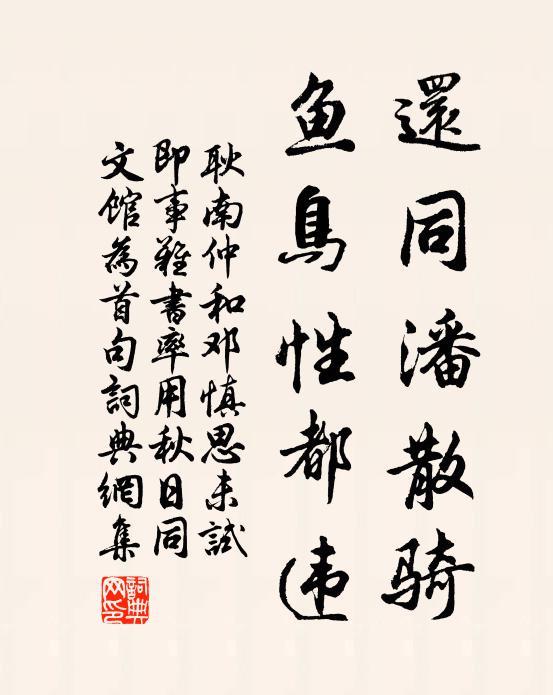 還同潘散骑
鱼鳥性都违
耿南仲和邓慎思未試
即事難書率用秋日同
文馆為首句詞典網集
詞典网印